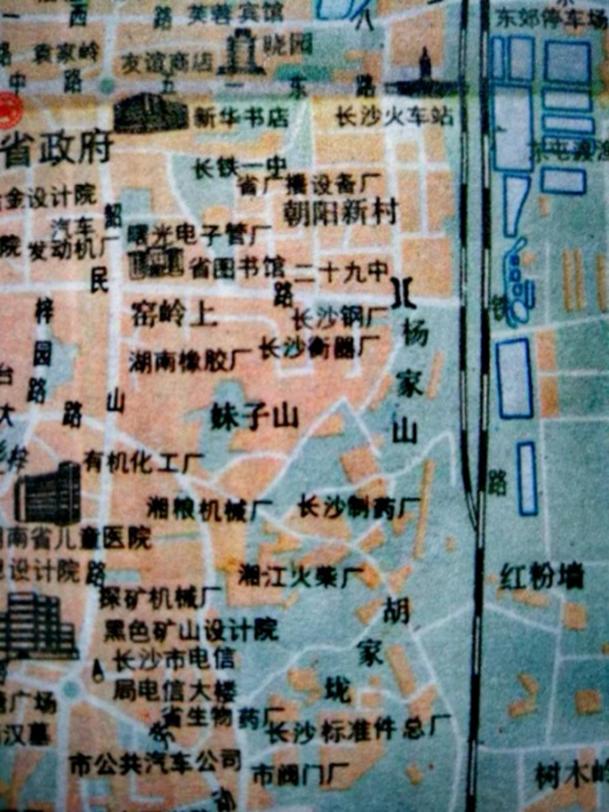 西
路
芙蓉宾馆
八
东郊停车场
路
袁家岭
晓园
友谊商店
中
路
五
一
东
路
新华书店
长沙火车站
省政府
长铁一中
省广播设备厂
冶金设计院
朝阳新村
韶
汽车
发动机厂
曙光电子管厂
院
民
省图书馆
二十九中
路
铁
梓
园
路
窑岭上
长沙钢厂
杨
家
山
湖南橡胶厂
长沙衡器厂
台
大
路
山
妹子山
有机化工厂
路
湘粮机械厂
长沙制药厂
南省儿童医院
设计院
路
湘江火柴厂
红粉墙
探矿机械厂
胡
家
垅
黑色矿山设计院
长沙市电信
局电信大楼
广场
省生物药厂
长沙标准件总厂
汉墓
市公共汽车公司
市阀门厂
树木岭